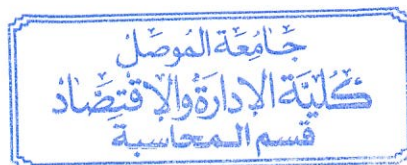 جَامِعَة المُوصَل
كُليَّة الإدَارَة وَالإقتِصَاد
قسم المحاسبة